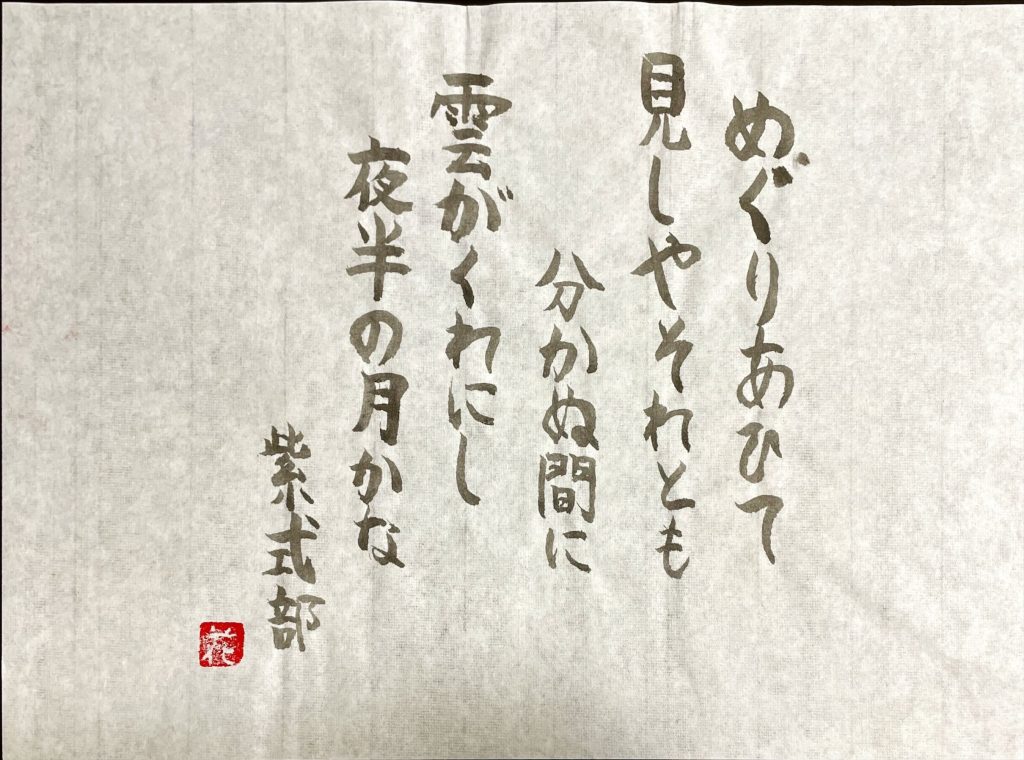 めぐりあひて
見しやそれとも
分かぬ間に
雲がくれにし
夜半の月かな
紫式部
花